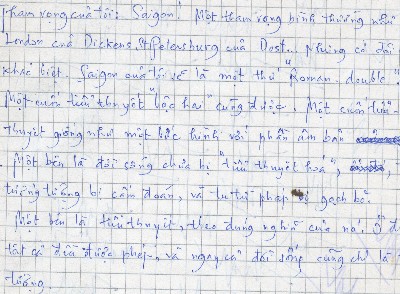 Tham vọng của tôi: Saigon! Một tham vọng bình thường như
London của Dickens, St Petersburg của Dost., nhưng có đôi
khác biệt. Saigon của tôi sẽ là một thứ "Roman double".
Một cuốn tiểu thuyết "bộc hai" cũng được. Một cuốn tiểu
thuyết giống như một bức hình với phần âm bản
Một bên là đời sống chưa bị "tiểu thuyết hoá",
tưởng tượng bị cấm đoán, và tu từ pháp bị gạch bỏ.
Một bên là tiểu thuyết, theo đúng nghĩa của nó. Ở đ
tất cả đều được phép, và ngay cả đời sống cũng chỉ là
tưởng